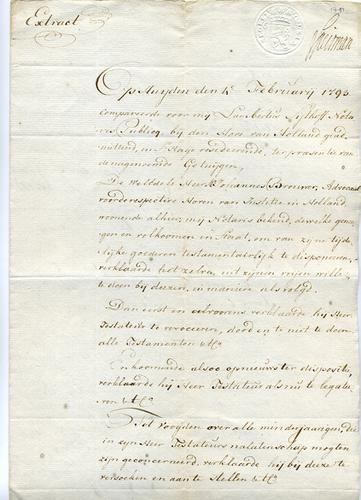 Extract
Op Huyden den 1e February 1793
compareerde voor my Lambertus Nota
ris Publicq, bij den Hove van Holland gead
mitteerd, in 's Hage resideerende, ter presentie van
de nagenoemde Getuijgen,
De Weledele Heer Mr Johannes Brouwer, Advocaat
voor de respective Hoven van Justitie in Holland
woonende alhier, mij Notaris bekend, dewelke gene
gen en volkoomen in staat, om van zijne tijde
lijke goederen testamentairlijk te disponeeren,
verklaarde het zelve, uit zijnen vrijen wille
te doen bij deezen, in maniere als volgt.
Dan eerst en alvoorens verklaarde hij Heer
Testateur te revoceeren, dood en te niet te doen
alle Testamenten &c.
En koomende alsoo opnieuws ter dispositie,
verklaarde hij Heer Testateur als nu te legatee
ren &c.
Tot Voogden over alle minderjaarigen, die
in zyn Heer Testateurs nalatenschap mogten
zijn geconcerneerd, verklaarde hij bij deeze te
versoeken en aan te stellen &c.